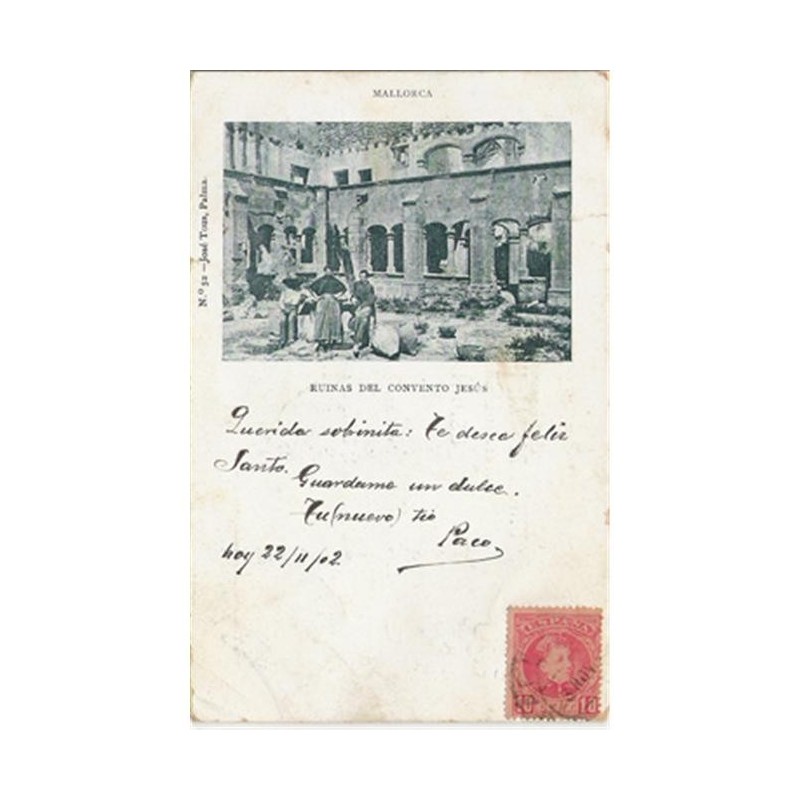 MALLORCA
N.º 52 — José Tous, Palma.
RUINAS DEL CONVENTO JESÚS
Querida sobinita: Te desea feliz
Santo.
Guardame un dulce.
Tu (nuevo) tio
Paco
hoy 22/11/02
ESPAÑA
10 10